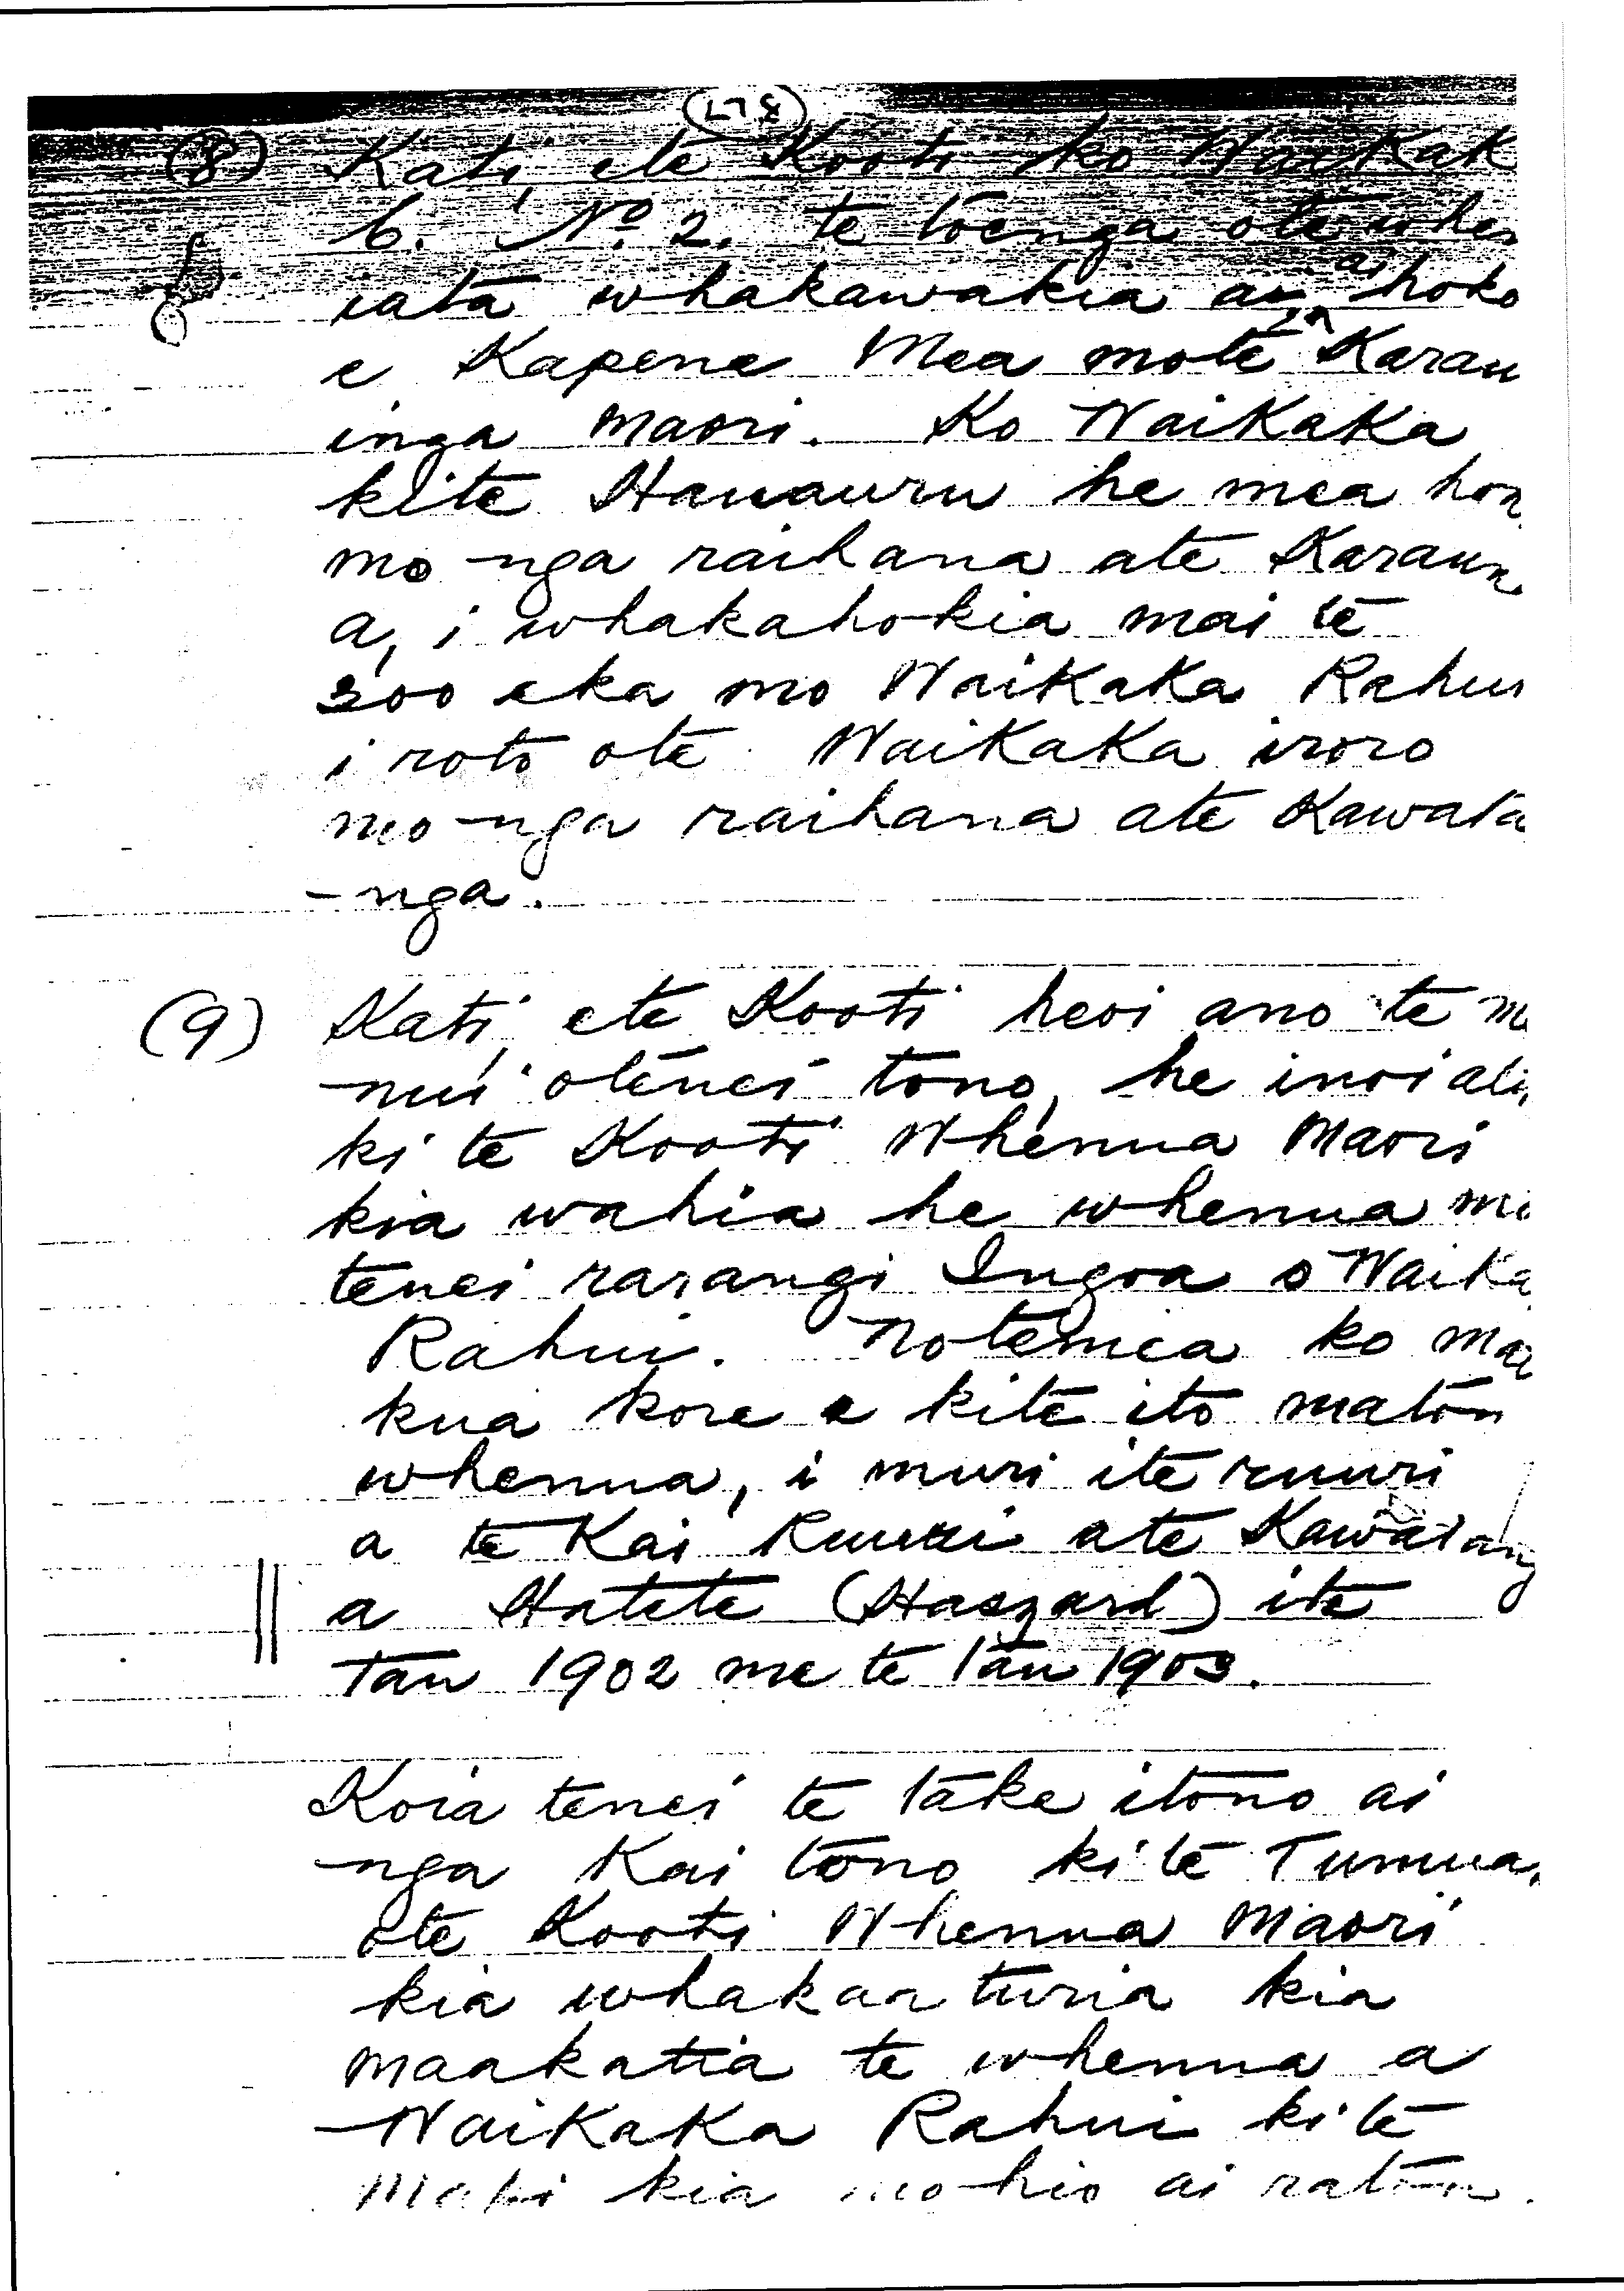 (8) Kati, ete Kooti ko Waikak
6. No. 2. te toenga ote when
iata whakawakia ai hoko
e Kapene Mea mote Karau
inga maori. Ko Waikaka
kite Hauauru he mea hon
mo nga raihana ate Karaun
a, i whakahokia mai te
300 eka mo Waikaka Rahui
i roto ote Waikaka iroro
mo nga raihana ate Kawata
-nga.
(9) Kati, ete Kooti heoi ano te m
nui otenei tono, he inoi atu
ki te Kooti Whenua Maori
kia wahia he whenua mo
tenei rarangi Ingoa o Waika
Rahui. Notemea ko mat
kua kore e kite ito matou
whenua, i muri ite ruuri
a te Kai Ruuri ate Kawatang
a Hatete (Haszard) ite
Tau 1902 me te Tau 1903.
Koia tenei te take itono ai
nga Kai tono ki te Tumua
ote Kooti Whenua Maori
kia whakaaturia kia
maakatia te whenua a
Waikaka Rahui ki te
Mapi kia mohio ai ratou